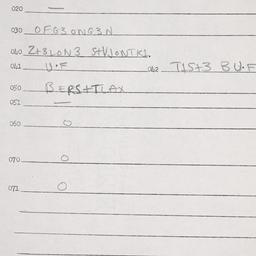 020 —
030 OFG3 ONG3N
040 Z+3LON3
041 U.F 042 T1S+3 B U.F
050 BERS+TLAX
051 —
060 O
070 O
071 O